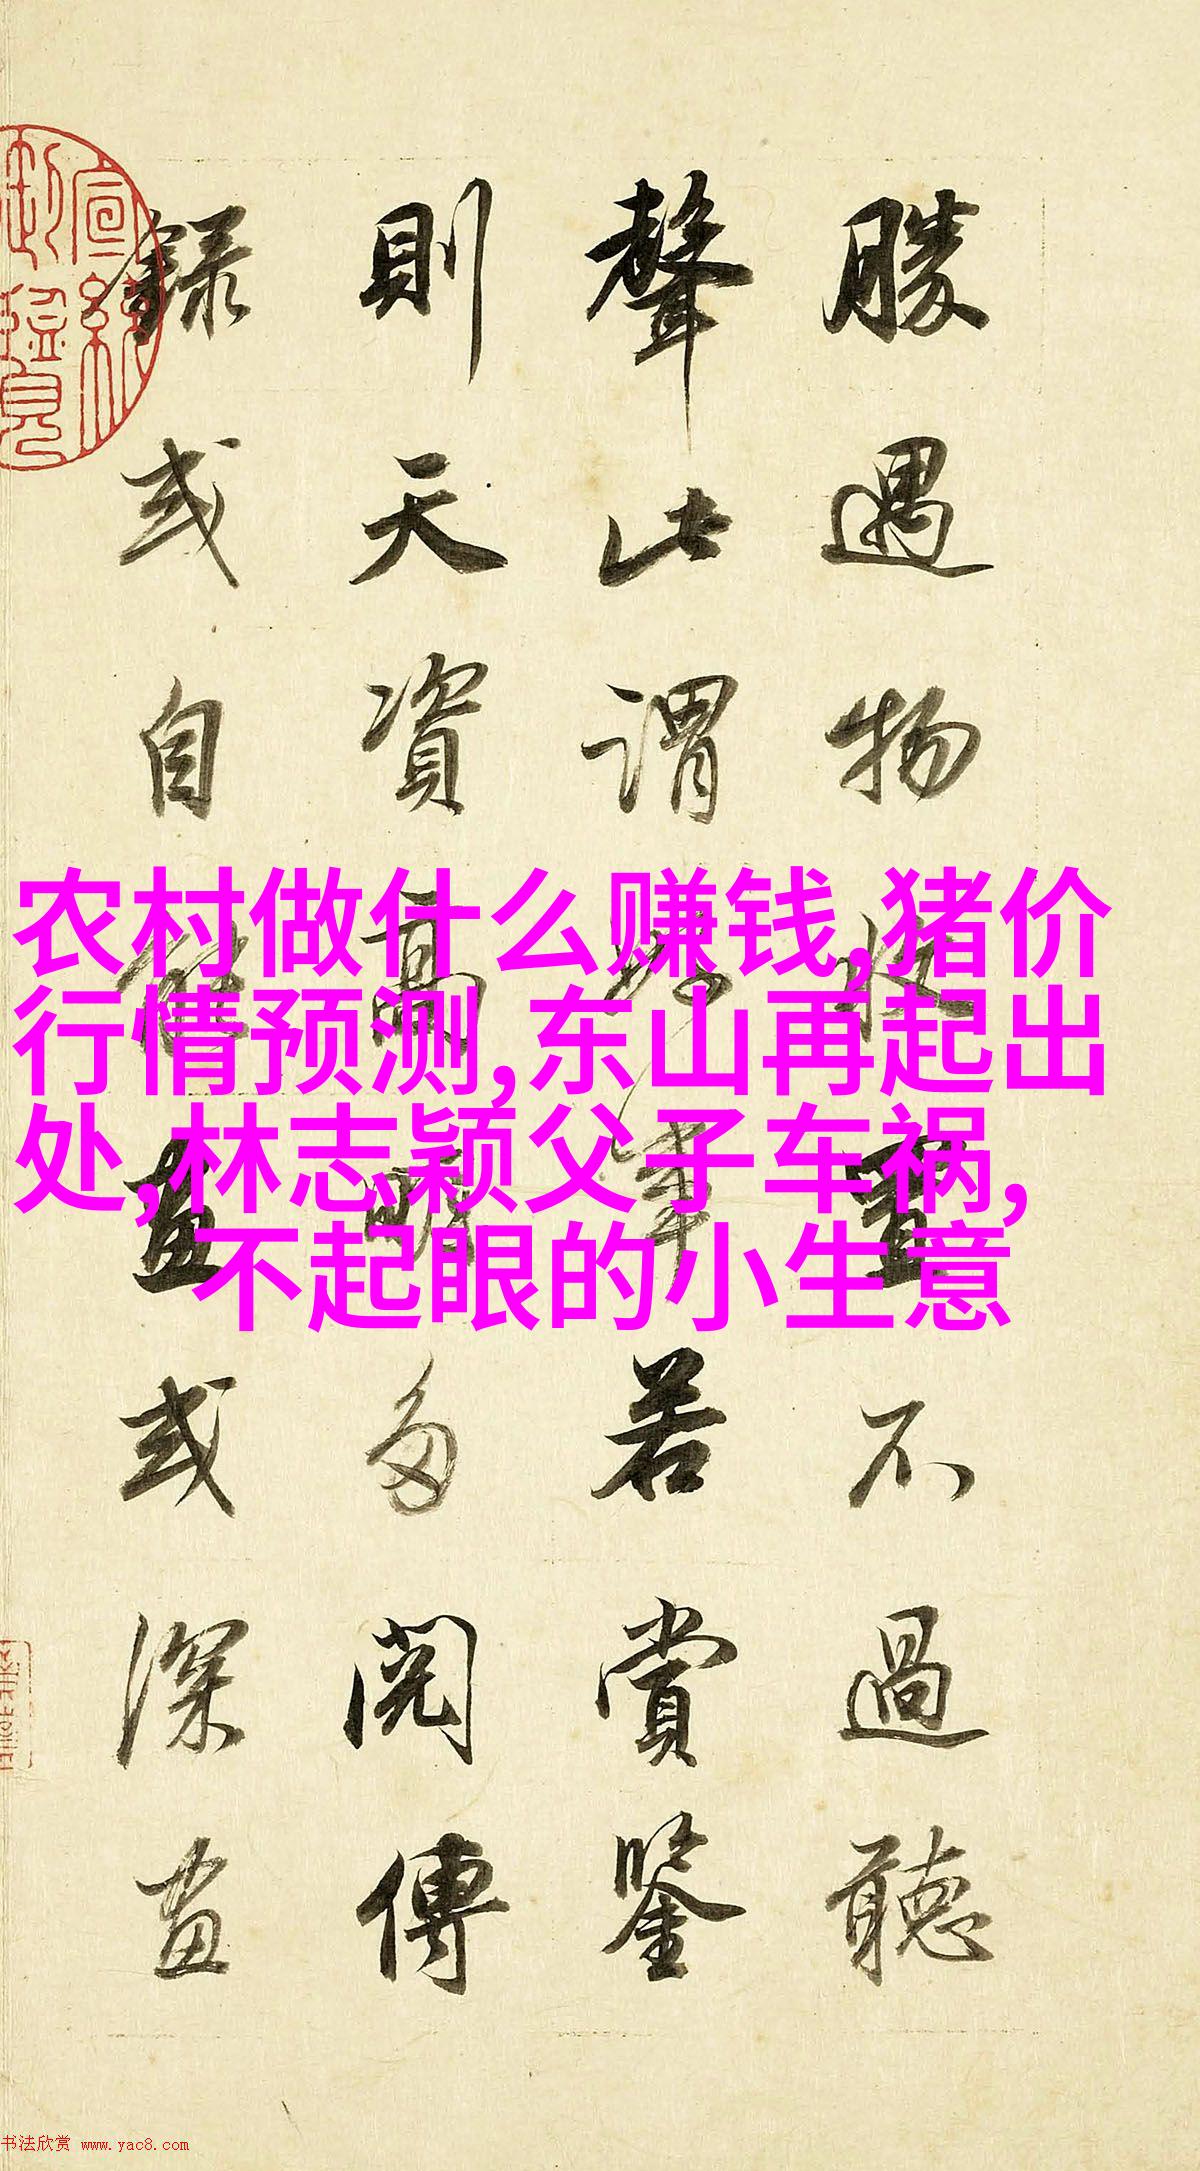 勝遇物收置不過聽
聲此謂好事若賞鑒
則天資高明多閱傳
錄或自能畫或深畫
农村做什么赚钱,猪价
行情预测,东山再起出
处,林志颖父子车祸,
不起眼的小生意
书法欣赏 www.yac8.com